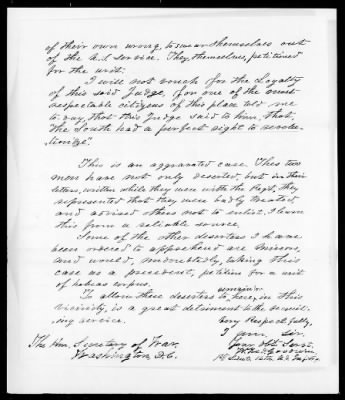 of their own wrong, to swear themselves out
of the U.S. service. They, themselves, petitioned
for the writ.
I will not vouch for the Loyalty
of this said Judge, for one of the most
respectable citizens of this place told me
to day, that this Judge said to him, that
the South had a perfect right to revolu-
tionize".
This is an aggravated case. These two
men have not only deserted, but in their
letters, written while they were with the Regt, they
represented that they were badly treated
and advised others not to enlist. I learn
this from a reliable source.
Some of the other deserters I have
been ordered to apprehend are Minors,
and would, undoubtedly, taking this
case as a precedent, petition for a writ
of habeas corpus.
To allow these deserters to remain here, in this
vicinity, is a great detriment to the recruit-
ing service.
Very Respectfully,
I am, Sir,
Your Obt. Servt.
1st Lieut. 12th U.S. Infty
The Hon. Secretary of War,
Washington, D.C.